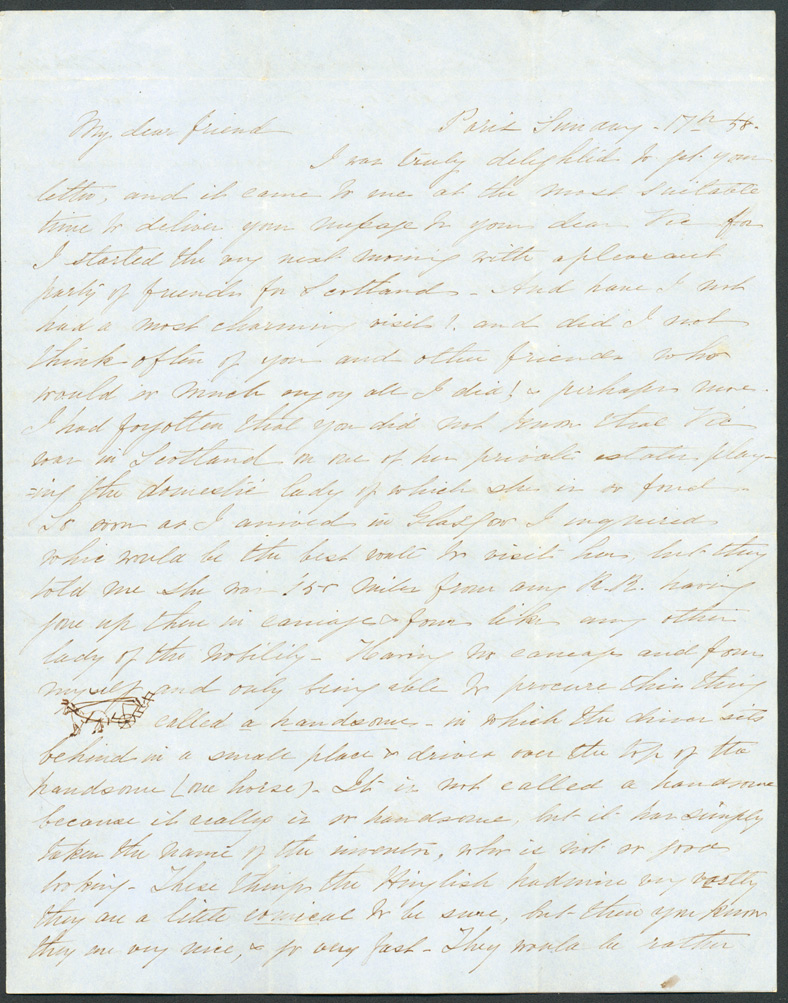 My dear friend Paris Sunday - 17th 58.
I was truly delighted to get your
letter, and it came to me at the most suitable
time to deliver your message to your dear Vic for
I started the very next morning with a pleasant
party of friends for Scotland - And have I not
had a most charming visit! and did I not
think often of you and other friends who
would so much enjoy all I did! & perhaps more.
I had forgotten that you did not know that Vic
was in Scotland on one of her private estates play-
=ing the domestic lady of which she is so fond -
So soon as I arrived in Glasgow I inquired
which would be the best route to visit her, but they
told me she was 150 miles from any R.R. having
gone up there in carriage & four like any other
lady of the Nobility - Having no carriage and four
myself and only being able to procure this thing
called a handsome - in which the driver sits
behind in a small place & drives over the top of the
handsome (one horse) - It is not called a handsome
because it really is so handsome, but it has simply
taken the name of the inventor, who is not so good
looking - These things the Hinglish hadmire very vastly
they are a little comical to be sure, but then you know
they are very nice, & go very fast - They would be rather